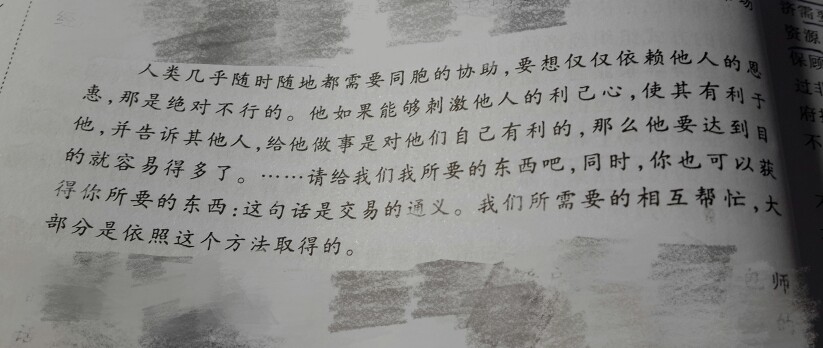 人类几乎随时随地都需要同胞的协助,要想仅仅依赖他人的恩
惠,那是绝对不行的。他如果能够刺激他人的利己心,使其有利于
他,并告诉其他人,给他做事是对他们自己有利的,那么他要达到目
的就容易得多了。……请给我们我所要的东西吧,同时,你也可以获
得你所要的东西:这句话是交易的通义。我们所需要的相互帮忙,大
部分是依照这个方法取得的。
师
济需要
资源
保顾
过非
府
不